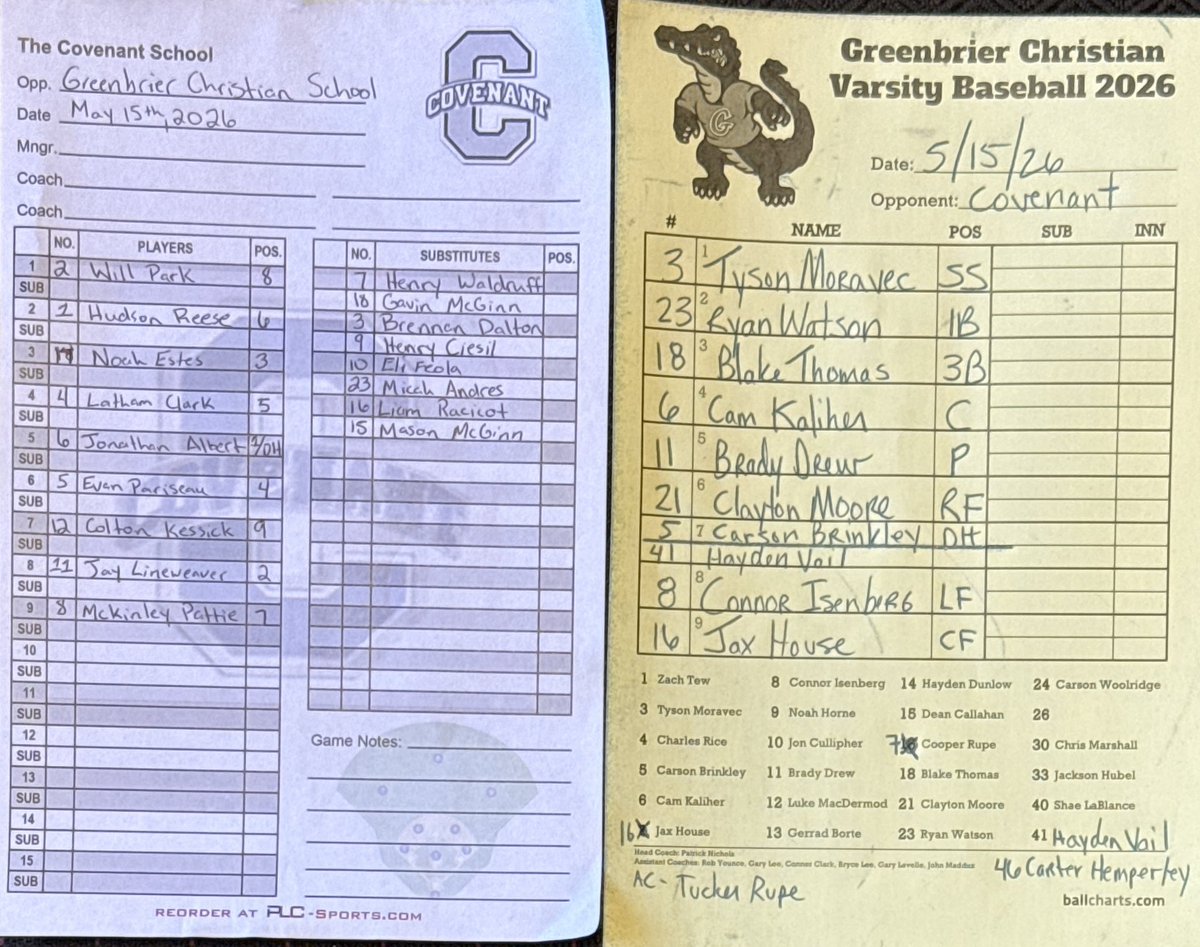 The Covenant School
Opp. Greenbrier Christian School
Date May 15th, 2026
Mngr.
Coach
Coach
C
COVENANT
NO. PLAYERS POS.
1 2 Will Park 8
SUB
2 1 Hudson Reese 6
SUB
3 Noah Estes 3
SUB
4 4 Latham Clark 5
SUB
5 6 Jonathan Albert 1/DH
SUB
6 5 Evan Pariseau 4
SUB
7 12 Colton Kessick 9
SUB
8 11 Jay Lineweaver 2
SUB
9 8 McKinley Pattie 7
SUB
10
SUB
11
SUB
12
SUB
13
SUB
14
SUB
15
SUB
NO. SUBSTITUTES POS.
7 Henry Waldruff
18 Gavin McGinn
3 Brennen Dalton
9 Henry Ciesil
10 Eli Feola
23 Micah Andres
16 Liam Racicot
15 Mason McGinn
Game Notes:
REORDER AT PLC-SPORTS.COM
Greenbrier Christian
Varsity Baseball 2026
G
Date: 5/15/26
Opponent: Covenant
# NAME POS SUB INN
3 1 Tyson Moravec SS
23 2 Ryan Watson 1B
18 3 Blake Thomas 3B
6 4 Cam Kaliher C
11 5 Brady Drew P
21 6 Clayton Moore RF
5 7 Carson Brinkley DH
41 Hayden Vail
8 8 Connor Isenberg LF
16 9 Jax House CF
1 Zach Tew 8 Connor Isenberg 14 Hayden Dunlow 24 Carson Woolridge
3 Tyson Moravec 9 Noah Horne 15 Dean Callahan 26
4 Charles Rice 10 Jon Cullipher 7 Cooper Rupe 30 Chris Marshall
5 Carson Brinkley 11 Brady Drew 18 Blake Thomas 33 Jackson Hubel
6 Cam Kaliher 12 Luke MacDermod 21 Clayton Moore 40 Shae LaBlance
16 Jax House 13 Gerrad Borte 23 Ryan Watson 41 Hayden Vail
Head Coach: Patrick Nichols
Assistant Coaches: Rob Younce, Gary Lee, Connor Clark, Bryce Lee, Gary Lavelle, John Maddux
46 Carter Hemperley
AC- Tucker Rupe
ballcharts.com